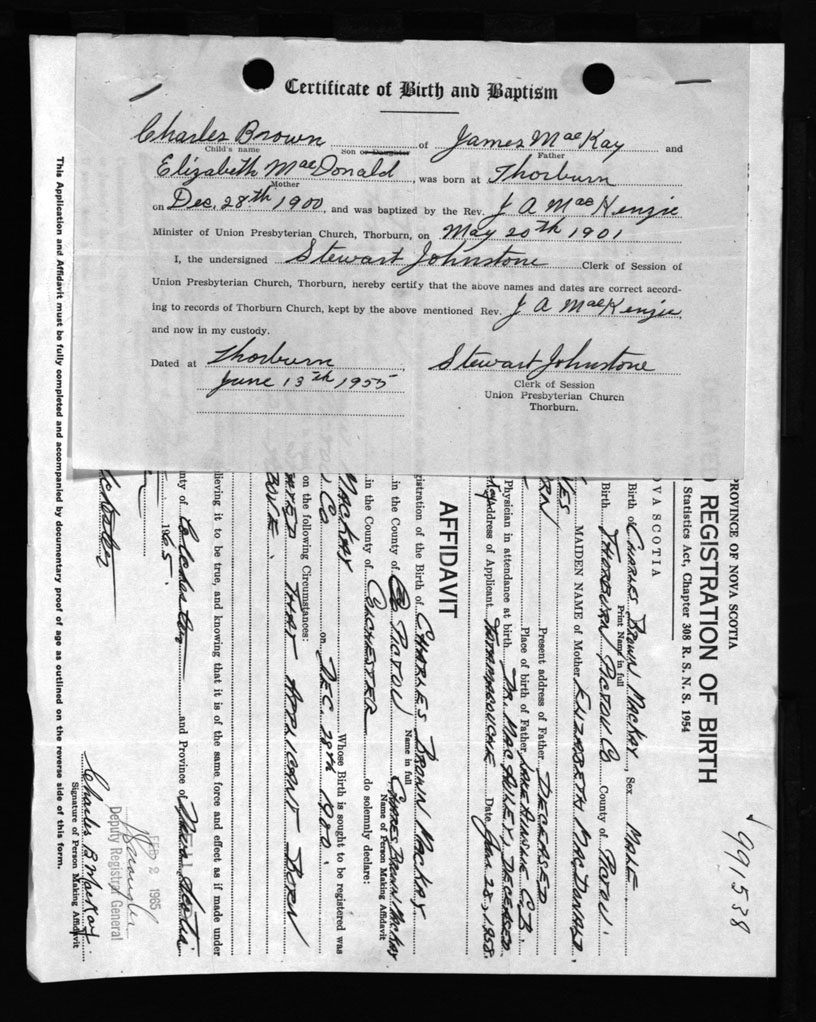 Certificate of Birth and Baptism
Charles Brown of James MacKay and
Child's name Son or Daughter Father
Elizabeth MacDonald, was born at Thorburn
Mother
on Dec. 28th 1900, and was baptized by the Rev. J A MacKenzie
Minister of Union Presbyterian Church, Thorburn, on May 20th 1901
I, the undersigned Stewart Johnstone Clerk of Session of
Union Presbyterian Church, Thorburn, hereby certify that the above names and dates are correct accord-
ing to records of Thorburn Church, kept by the above mentioned Rev. J A MacKenzie,
and now in my custody.
Dated at Thorburn
June 13th 1955
Stewart Johnstone
Clerk of Session
Union Presbyterian Church
Thorburn.
991538
PROVINCE OF NOVA SCOTIA
REGISTRATION OF BIRTH
Statistics Act, Chapter 308 R. S. N. S. 1954
OVA SCOTIA
Birth of Charles Brown MacKay, Sex Male.
Print Name in full
Birth Thorburn Pictou Co County of Pictou
MAIDEN NAME of Mother Elizabeth MacDonald.
Present address of Father Deceased
Place of birth of Father Lake Ainslie C.B.
Physician in attendance at birth Dr. MacAuley, Deceased
Address of Applicant Tatamagouche Date Jan. 28,
AFFIDAVIT
gistration of the Birth of Charles Brown MacKay.
Name in full
in the County of Pictou Charles Brown MacKay
Name of Person Making Affidavit
in the County of Colchester do solemnly declare:
MacKay Whose Birth is sought to be registered was
Co. on Dec. 28th 1900.
on the following Circumstances:
that applicant born
lieving it to be true, and knowing that it is of the same force and effect as if made under
nty of Colchester and Province of Nova Scotia
FEB 2 1965
Deputy Registrar General
Charles B. MacKay
Signature of Person Making Affidavit
This Application and Affidavit must be fully completed and accompanied by documentary proof of age as outlined on the reverse side of this form.